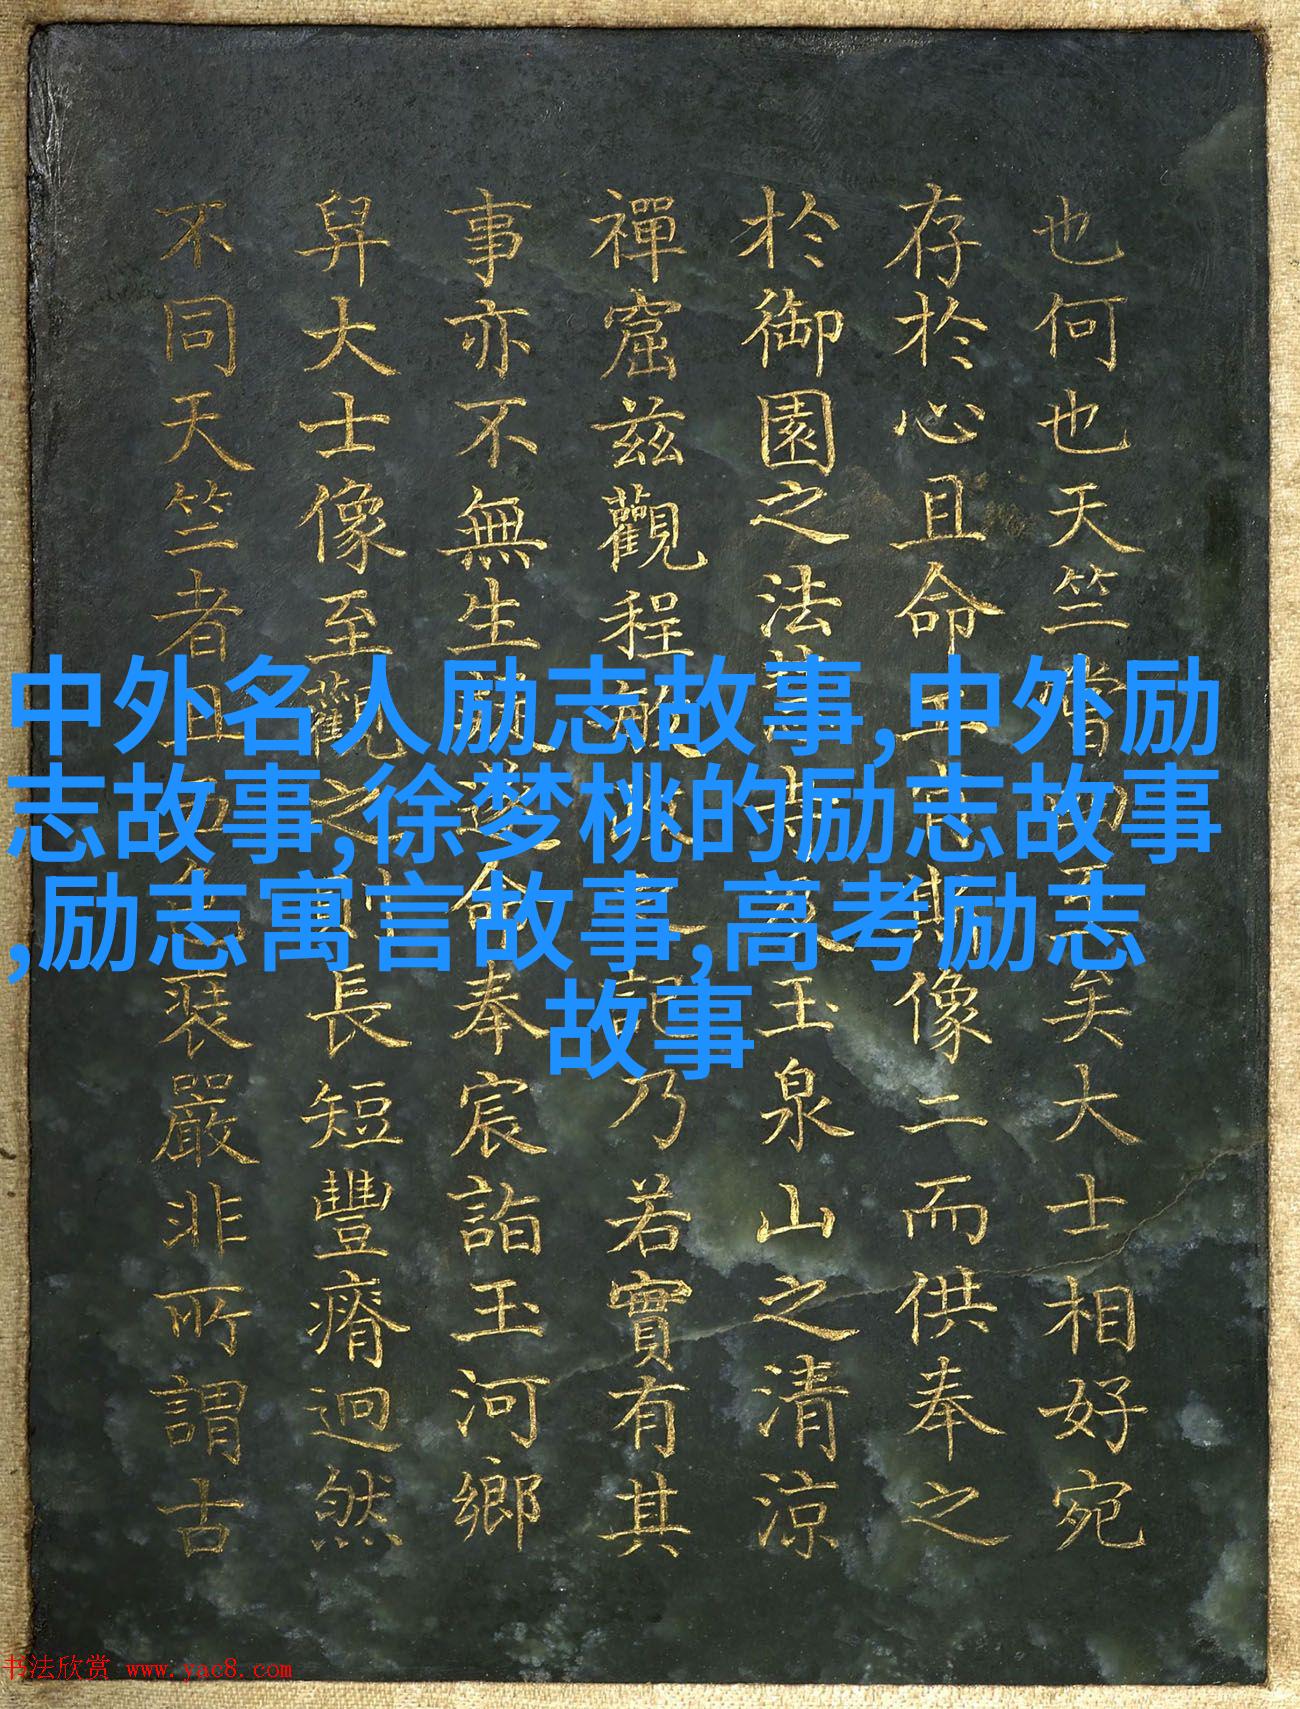 也何也天竺當矣大士相好宛
存於心且命則像二而供奉之
於御園之法寺玉泉山之清涼
禪窟兹觀程敏記乃若實有其
事亦不無生疑遂命奉宸詣玉河鄉
舁大士像至觀之則長短豐瘠迥然
不同天竺者且五色裝嚴非所謂古
中外名人励志故事,中外励
志故事,徐梦桃的励志故事
,励志寓言故事,高考励志
故事
书法欣赏 www.yac8.com